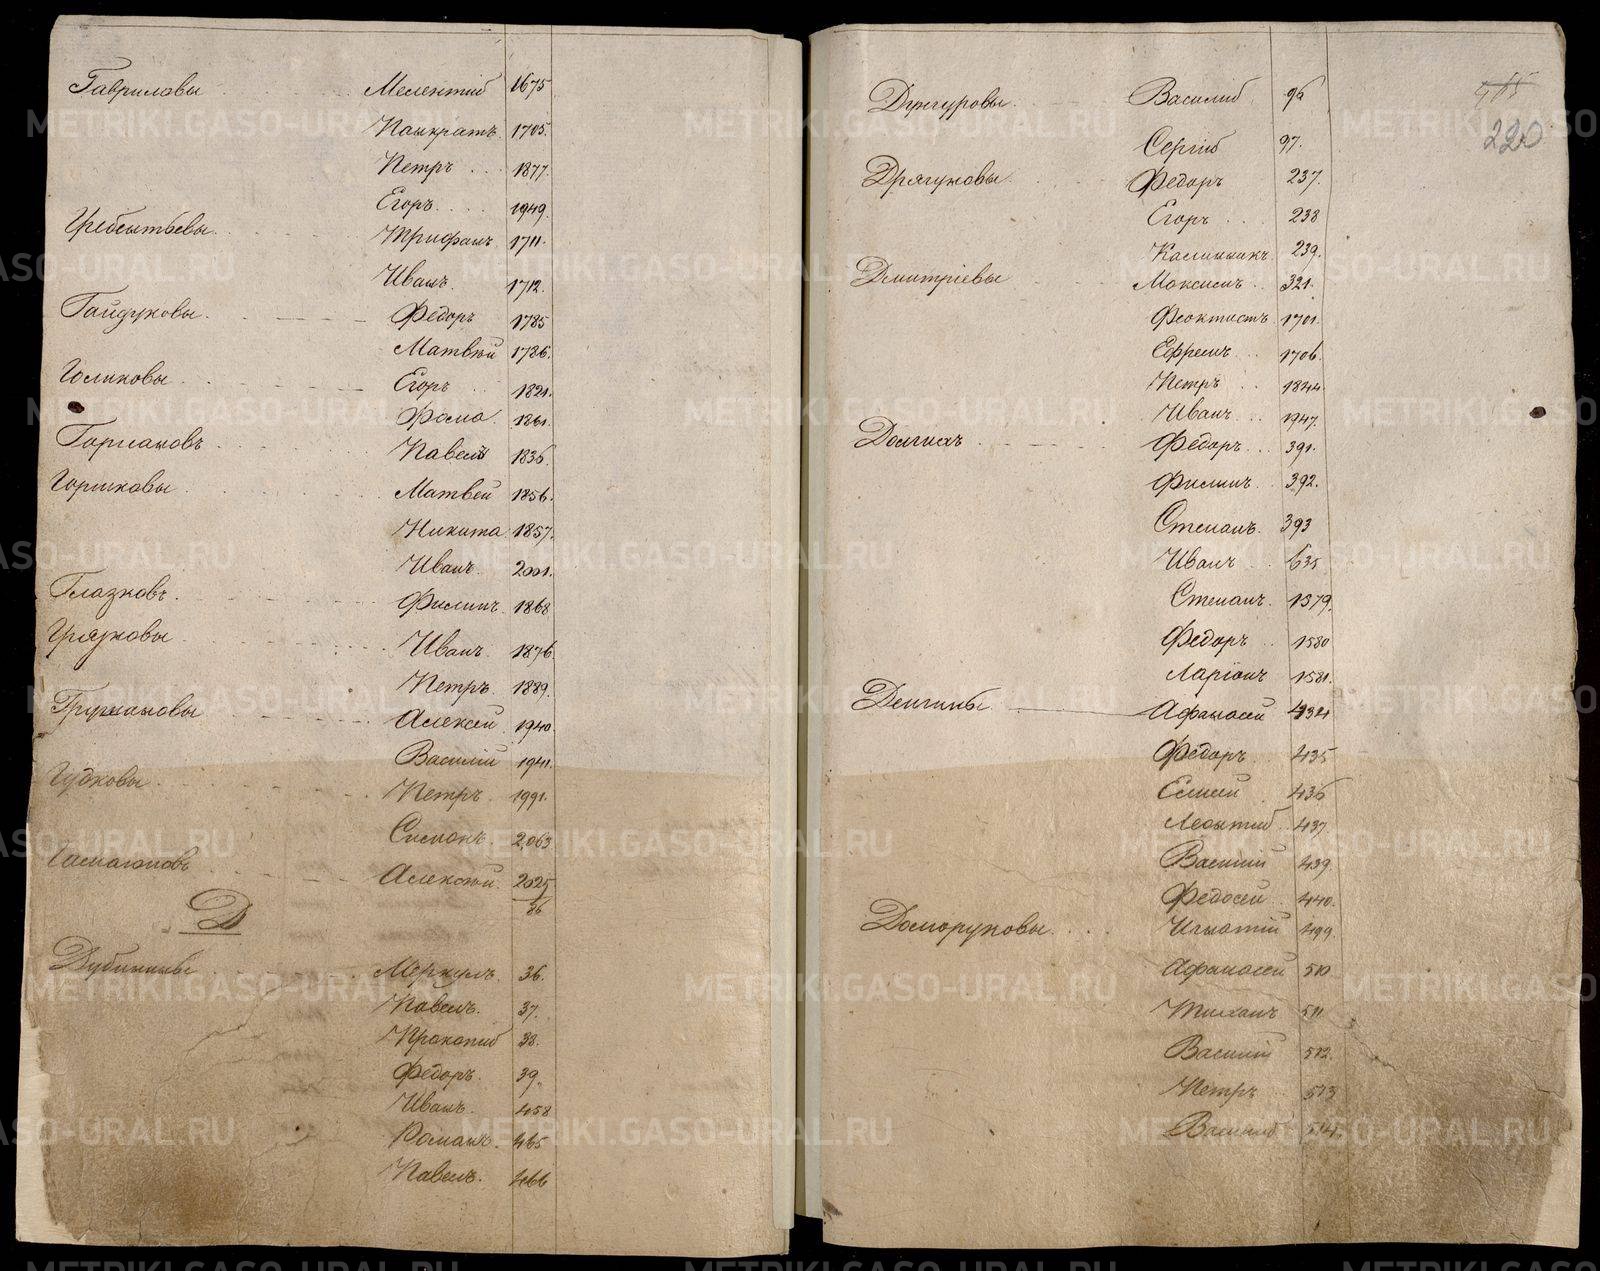 Гавриловы Мелентий 1675
Панкратъ. 1705.
Петръ 1877.
Егоръ. 1949.
Гребентьевы. Трифанъ 1711.
Иванъ. 1712.
Гайдуковы. Федоръ 1785
Матвѣй 1786.
Голиковы Егоръ 1821.
Фома. 1861.
Гормаковъ Павелъ 1836.
Горшковы Матвей 1856.
Никита 1857.
Иванъ. 2001.
Глазковъ. Филипъ 1868
Грязковы Иванъ. 1876.
Петръ. 1889.
Алексей 1940.
Василий 1941.
Гудковы Петръ. 1991.
Симонъ. 2,063
Алексѣй. 2025
86
Д
Дубинины Меркулъ. 36.
Павелъ. 37.
Прокопий 38.
Федоръ. 39.
Иванъ. 458
Романъ. 465
Павелъ. 466
220
Дунгуровы. Василий. 96
Сергий 97.
Дрягуновы. Федоръ 237.
Егоръ 238
Калинникъ. 239.
Дмитріевы Максимъ. 321.
Феоктистъ 1701.
Ефремъ. 1706.
Петръ 1844.
Иванъ 1947.
Долгихъ Федоръ. 391.
Филипъ. 392.
Степанъ. 393
Иванъ 635
Степанъ. 1579.
Федоръ 1580
Ларіонъ 1581.
Денгины Афанасей 434
Федоръ. 435
Елисей 436
Леонтий 437
Василий 439
Федосей 440.
Доморуковы. Игнатий 499.
Афанасей 510
Тиханъ 511
Василий 512.
Петръ 513
Василий 514.
METRIKI.GASO-URAL.RU